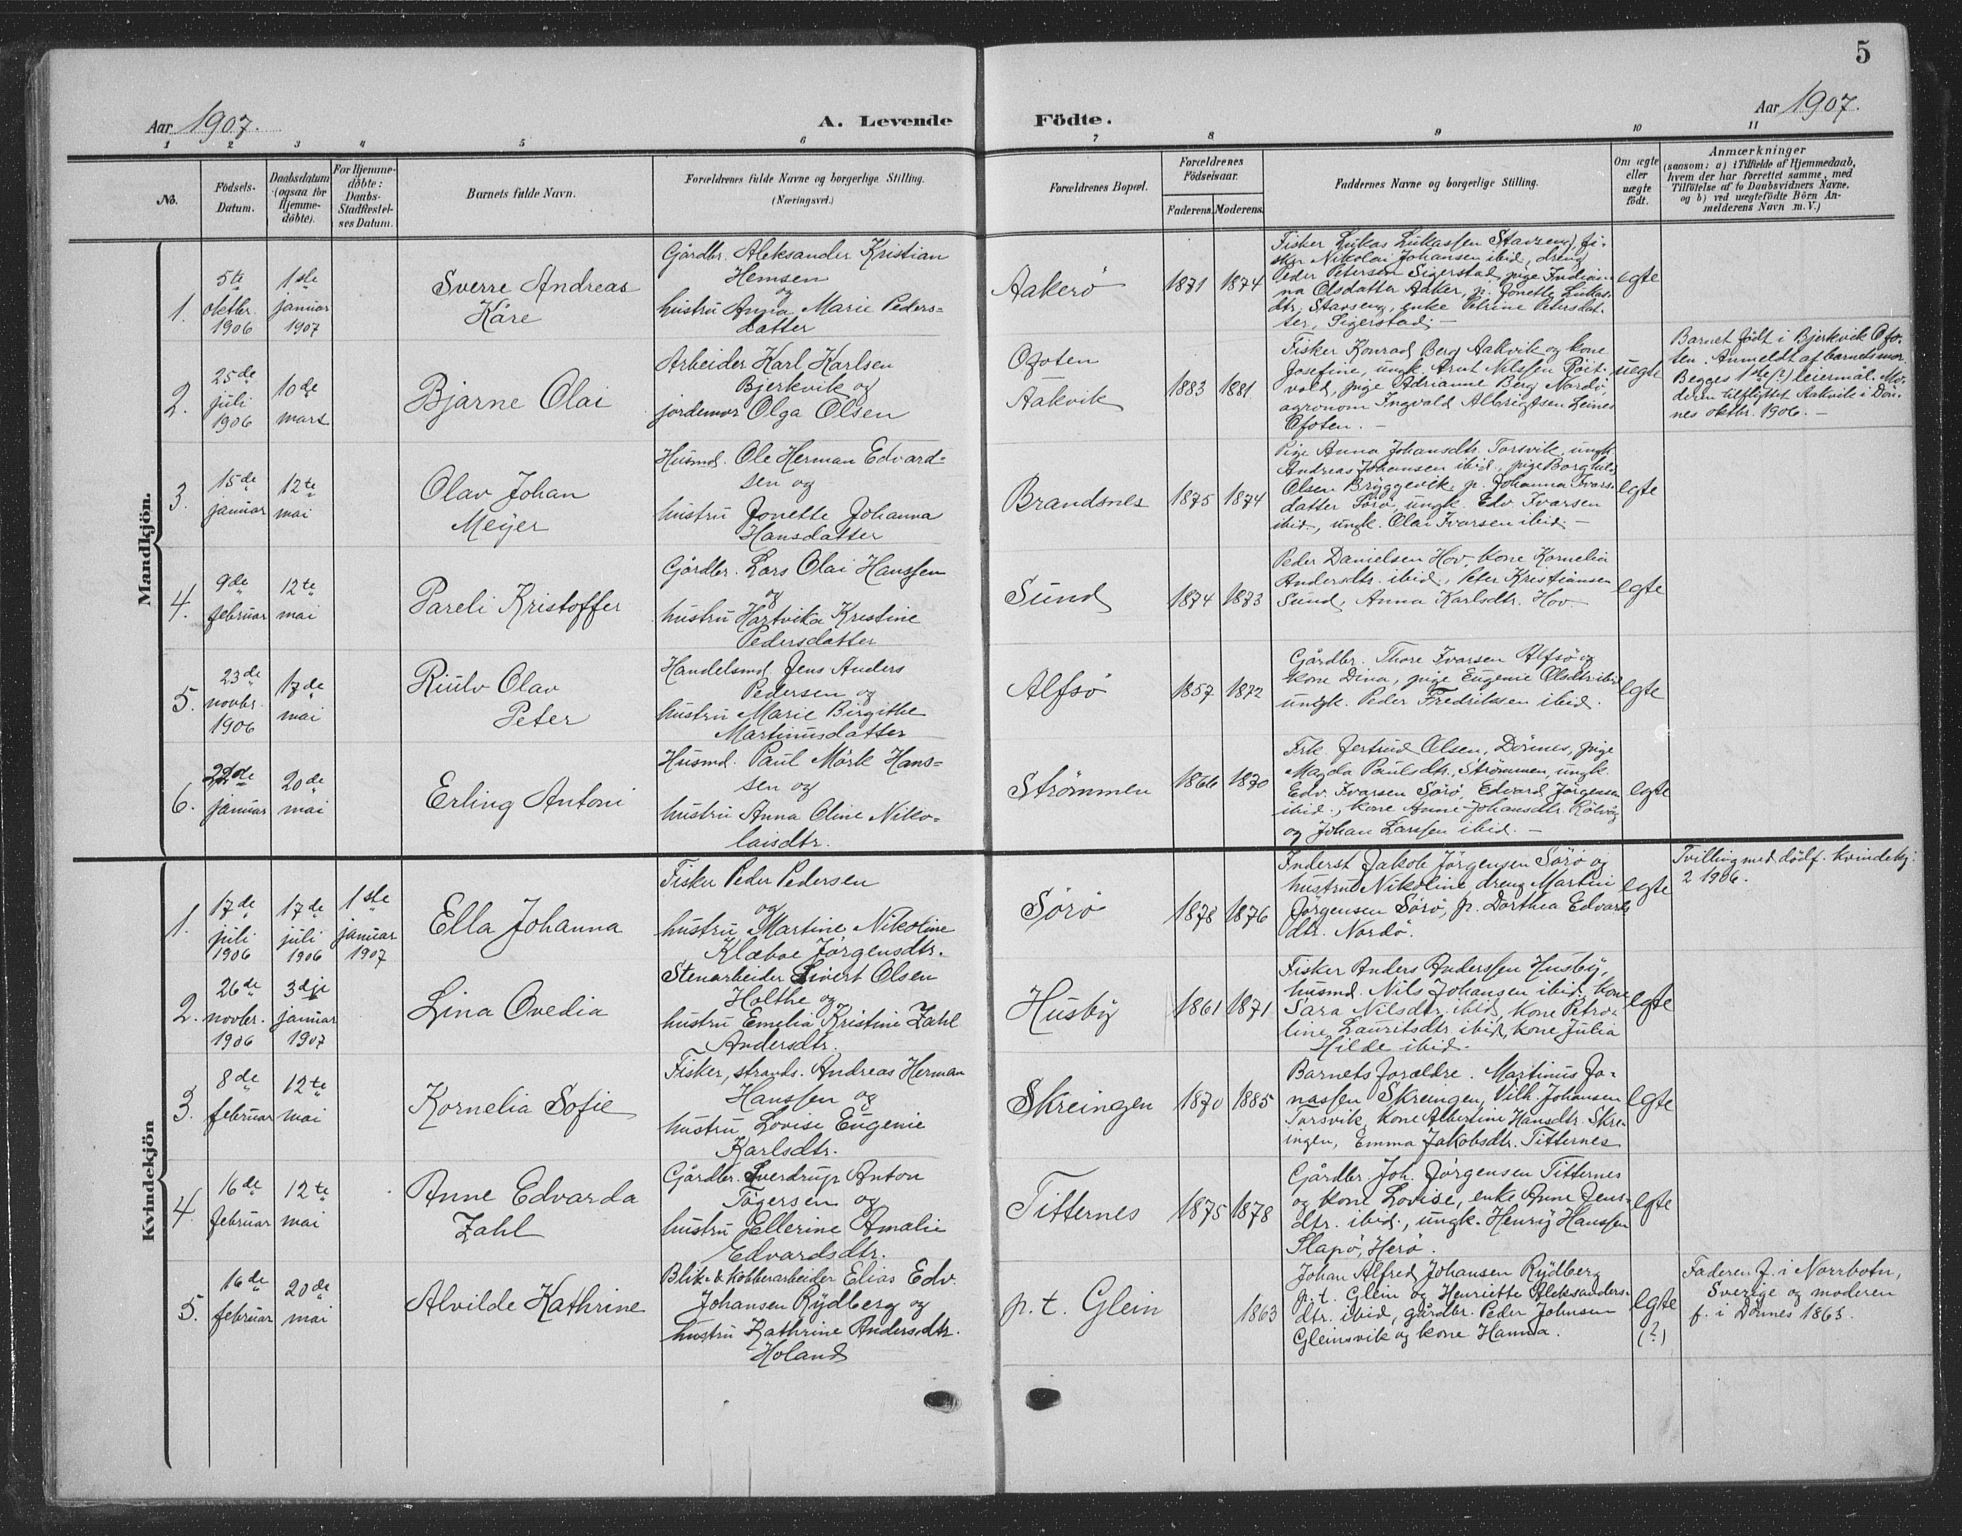 5
Aar 1907.
A. Levende
Födte.
Aar 1907.
1 2 3 4 5 6 7 8 9 10 11
No.
Födsels-
Datum.
Daabsdatum
(ogsaa for
Hjemme-
döbte).
For Hjemme-
döbte:
Daabs-
Stadfæstel-
ses Datum.
Barnets fulde Navn.
Forældrenes fulde Navne og borgerlige Stilling.
(Næringsvei.)
Forældrenes Bopæl.
Forældrenes
Födselsaar.
Faderens. Moderens.
Faddernes Navne og borgerlige Stilling.
Om ægte
eller
uægte
födt.
Anmærkninger
(saasom: a) i Tilfælde af Hjemmedaab,
hvem der har forrettet samme, med
Tilföielse af to Daabsvidners Navne,
og b) ved uægtefödte Börn An-
melderens Navn m.V.)
Mandkjön.
1.
5te
oktbr.
1906
1ste
januar
1907
Sverre Andreas
Kåre
Gårdbr. Aleksander Kristian
Hemsen
og
hustru Anna Marie Peders-
datter
Aakerø
1871 1874
Fisker Lukas Lukassen Stavseng, fi-
sker Nikolai Johansen ibid, dreng
Peder Petersen Sigerstad, pige Indian-
na Olsdatter Aaker, p. Jonette Lukas-
dtr. Stavseng, enke Petrine Petersdat-
ter, Sigerstad.
egte
2.
25de
juli
1906
10de
mars
Bjarne Olai
Arbeider Karl Karlsen
Bjerkvik og
jordemor Olga Olsen
Ofoten
Aakvik
1883 1881
Fisker Konrad Berg Aakvik og kone
Josefine, ungk. Arnt Nilssen Röit-
vold, pige Adrianne Berg Nordø,
agronom Ingvald Albrigtsen Leines
Ofoten. –
uegte
Barnet født i Bjerkvik Ofo-
ten. Anmeldt af barnets mor.
Begges 1ste (?) leiermål. Mo-
deren tilflyttet Aakvik i Døn-
nes oktbr. 1906. –
3.
15de
januar
12te
mai
Olav Johan
Meyer
Husmd. Ole Herman Edvard-
sen og
hustru Jonette Johanna
Hansdatter
Brandsnes
1875 1874
Pige Anna Johansdtr. Torsvik, ungk.
Andreas Johansen ibid., pige Borghild
Olsen Bryggevik, p. Johanna Ivars-
datter Sørø, ungk. Edv. Ivarsen
ibid., ungk. Olai Ivarsen ibid. –
egte
4.
9de
februar
12te
mai
Pareli Kristoffer
Gårdbr. Lars Olai Hanssen
og
hustru Hartvika Kristine
Pedersdatter
Sund
1874 1873
Peder Danielsen Hov, kone Kornelia
Andersdtr. ibid., Peter Kristiansen
Sund, Anna Karlsdtr. Hov.
egte
5.
23de
novbr.
1906
17de
mai
Riulv Olav
Peter
Handelsmd. Jens Anders
Pedersen og
hustru Marie Birgithe
Martinusdatter
Alfsø
1857 1872
Gårdbr. Thore Ivarsen Alfsø og
kone Dina, pige Eugenie Olsdtr. ibid
ungk. Peder Fredriksen ibid.
egte
6.
januar
20de
mai
Erling Antoni
Husmd. Paul Mörk Hans-
sen og
hustru Anna Oline Niko-
laisdtr.
Strømmen
1866 1870
Frk. Jertrud Olsen, Dönnes, pige
Magda Paulsdtr., Strømmen, ungk.
Edv. Ivarsen Sørø, Edvard Jørgensen
ibid., kone Anne Johansdtr. Kölvåg
og Johan Larssen ibid. –
egte
Kvindekjön
1.
17de
juli
1906
17de
juli
1906
1ste
januar
1907
Ella Johanna
Fisker Peder Pedersen
og
hustru Martine Nikoline
Klæboe Jørgensdtr.
Sørø
1878 1876
Inderst Jakob Jørgensen Sörö og
hustru Nikoline, dreng Martin
Jørgensen Sørø, p. Dorthea Edvards
dtr. Nordø.
egte
Tvilling med dödf. kvindekj.
2 1906.
2.
26de
novbr.
1906
3dje
januar
1907
Lina Ovedia
Stenarbeider Sivert Olsen
Holthe og
hustru Emelia Kristine Zahl
Andersdtr.
Husby
1861 1871
Fisker Anders Anderssen Husby,
husmd. Nils Johansen ibid., kone
Sara Nilsdtr. ibid, kone Petro-
line Lauritsdtr. ibid, kone Julia
Hilde ibid.
egte
3.
8de
februar
12te
mai
Kornelia Sofie
Fisker, strands. Andreas Herman
Hanssen og
hustru Lovise Eugenie
Karlsdtr.
Skreingen
1870 1885
Barnets forældre. Martinus Jo-
nassen Skreingen, Vilh. Johansen
Torsvik, kone Albertine Hansdtr. Skre-
ingen, Emma Jakobsdtr. Titternes
egte
4.
16de
februar
12te
mai
Anne Edvarda
Zahl
Gårdbr. Sverdrup Anton
Togersen og
hustru Ellerine Amalie
Edvardsdtr.
Titternes
1875 1878
Gårdbr. Joh. Jørgensen Titternes
og kone Lovise, enke Anne Jens-
dtr. ibid., ungk. Henry Hanssen
Slapø, Herø.
egte
5.
16de
februar
20de
mai
Alvilde Kathrine
Blik- & Kobberarbeider Elias Edv.
Johansen Rydberg og
hustru Kathrine Andersdtr.
Holand
p. t. Glein
1863
Johan Alfred Johansen Rydberg
p. t. Glein og Henriette Aleksanders-
dtr. ibid, gårdbr. Peder Johnsen
Gleinsvik og kone Hanna.
egte
(?)
Faderen f. i Norrbotn,
Sverige og moderen
f. i Dönnes 1863.